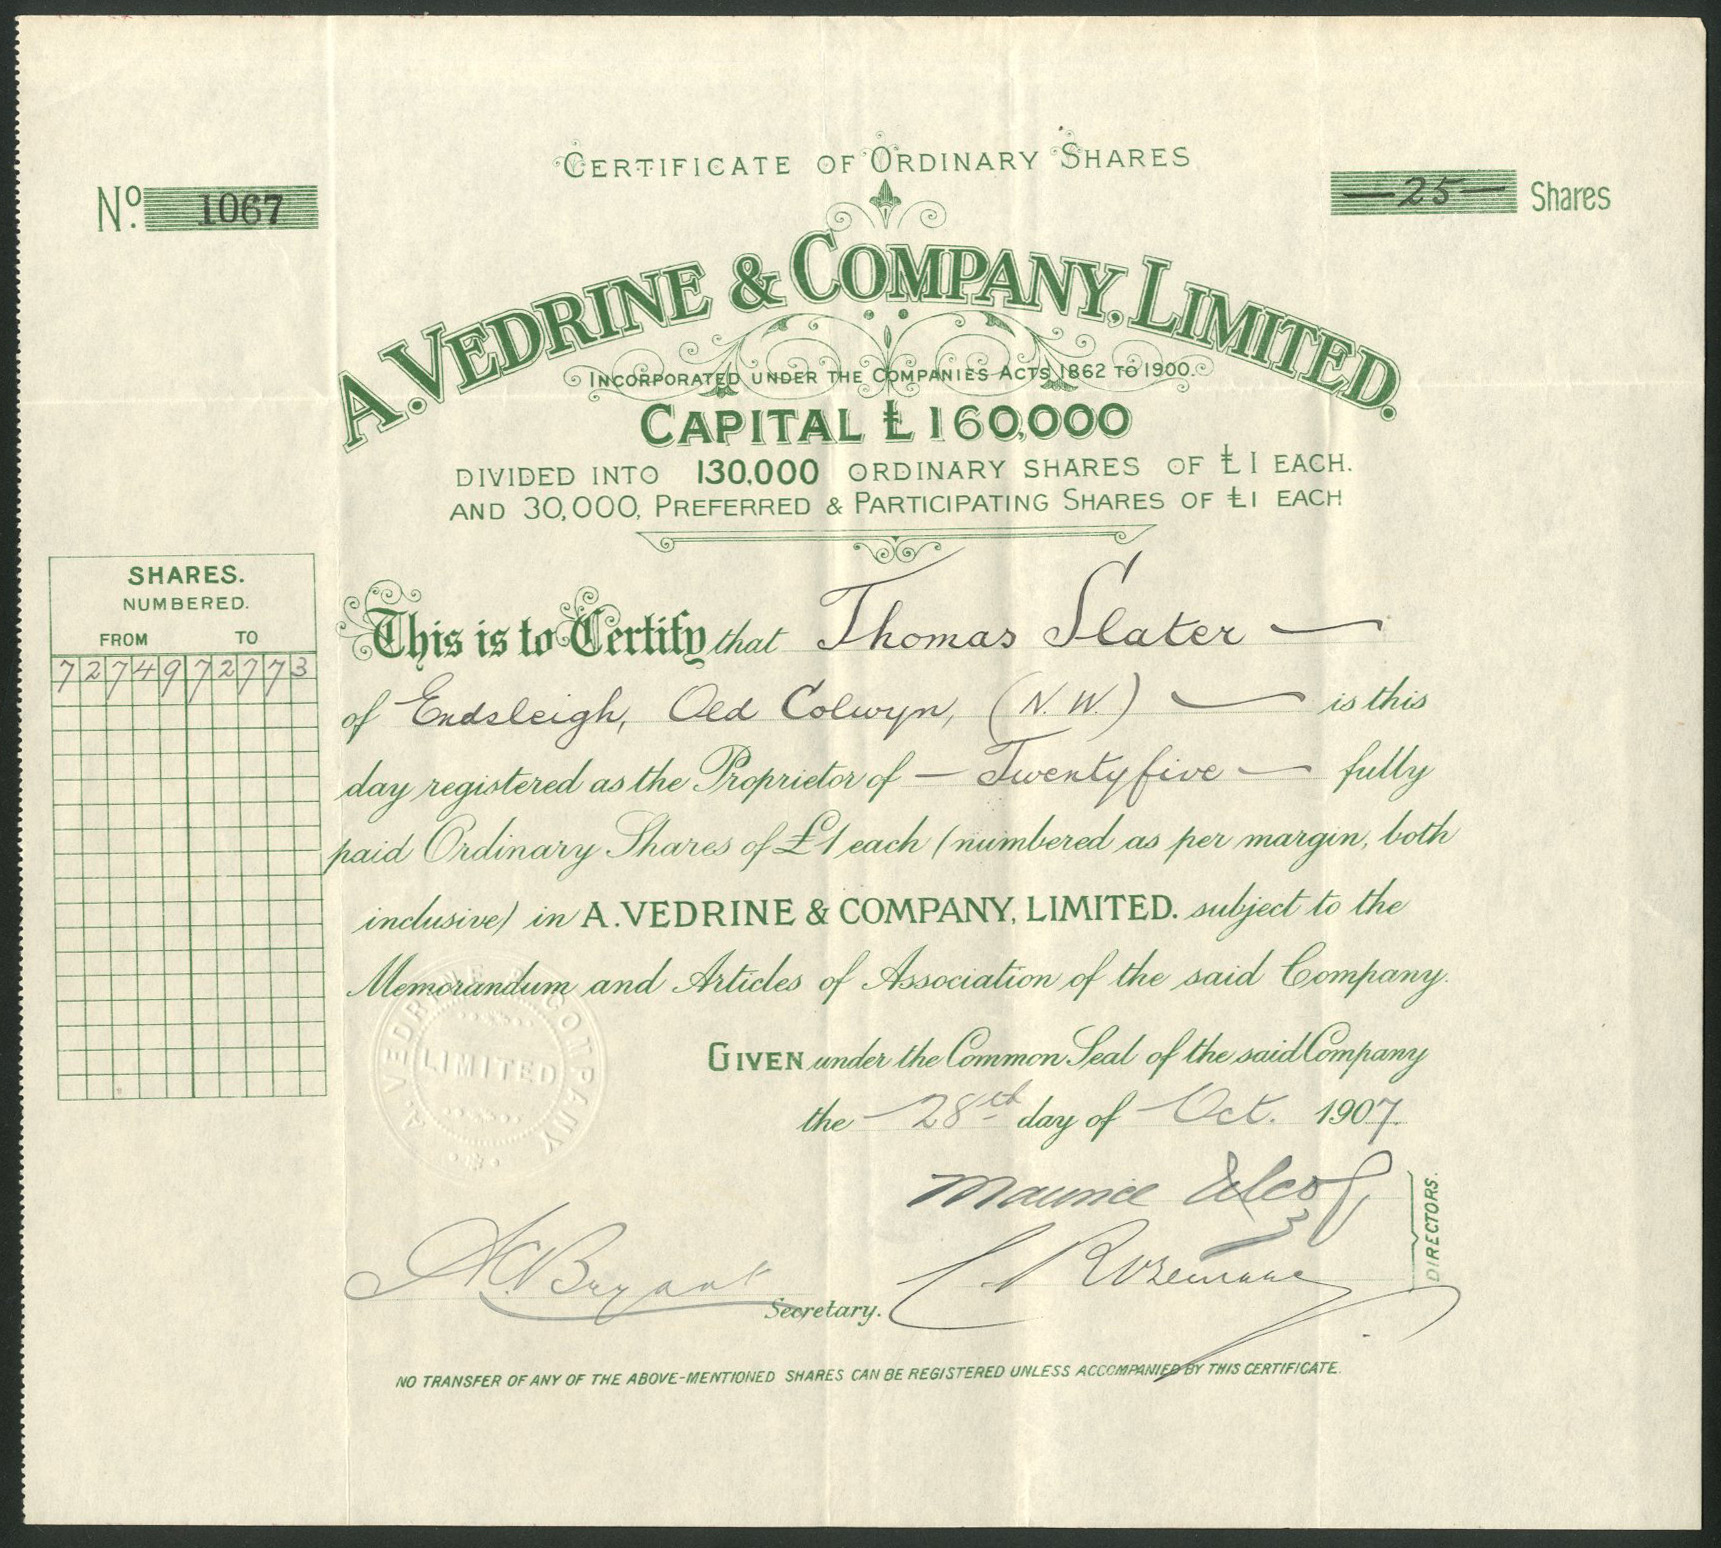 CERTIFICATE OF ORDINARY SHARES
No. 1067
—25— Shares
A. VEDRINE & COMPANY, LIMITED.
INCORPORATED UNDER THE COMPANIES ACTS 1862 TO 1900.
CAPITAL £160,000
DIVIDED INTO 130,000 ORDINARY SHARES OF £1 EACH.
AND 30,000, PREFERRED & PARTICIPATING SHARES OF £1 EACH
SHARES.
NUMBERED.
FROM TO
72749 72773
This is to Certify that Thomas Slater —
of Endsleigh, Old Colwyn, (N.W.) — is this
day registered as the Proprietor of — Twentyfive — fully
paid Ordinary Shares of £1 each (numbered as per margin, both
inclusive) in A. VEDRINE & COMPANY, LIMITED. subject to the
Memorandum and Articles of Association of the said Company.
GIVEN under the Common Seal of the said Company
the — 28th day of — Oct. 1907.
A. VEDRINE & COMPANY
LIMITED
Maurice
DIRECTORS.
Bryant
Secretary.
NO TRANSFER OF ANY OF THE ABOVE-MENTIONED SHARES CAN BE REGISTERED UNLESS ACCOMPANIED BY THIS CERTIFICATE.